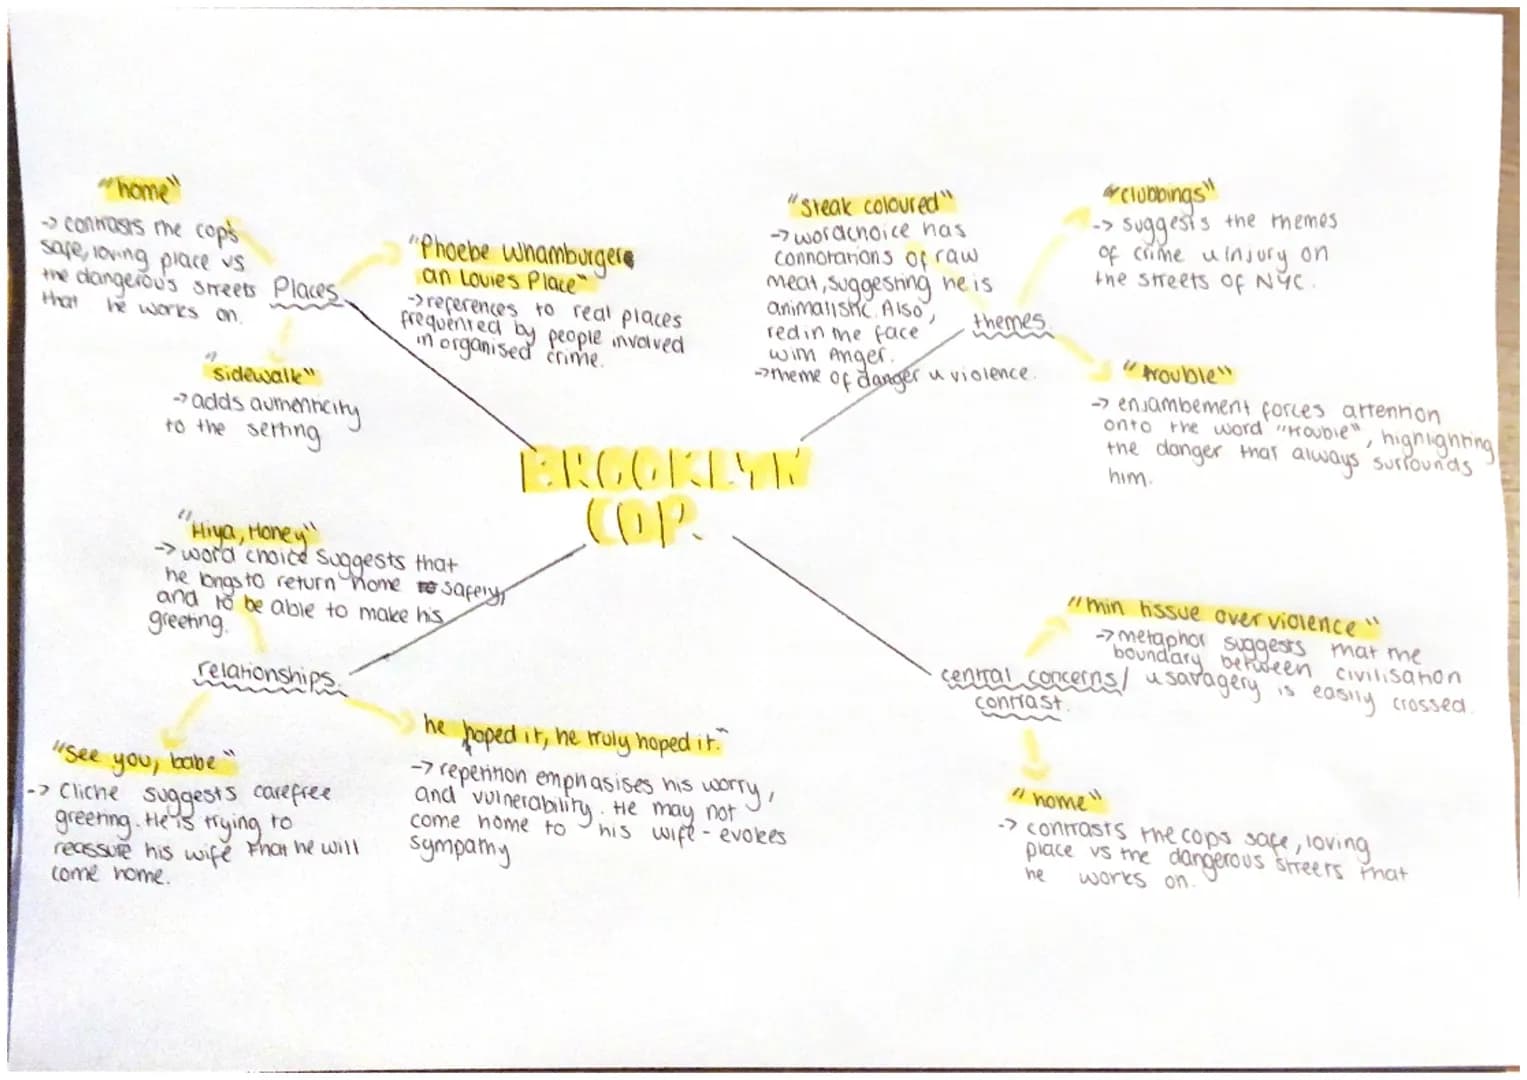 BROOKLYN
COP.
Places
"home"
-> contrasts the cop's
safe, loving place vs
the dangerous streets
that he works on.
"Phoebe Whamburger
an Louies Place"
-> references to real places
frequented by people involved
in organised crime.
"sidewalk"
-> adds authenticity
to the setting
themes
"steak coloured"
-> word choice has
connotations of raw
meat, suggesting he is
animalistic. Also,
red in the face
with Anger.
-> theme of danger u violence.
"clubbings"
-> suggests the themes
of crime u injury on
the streets of NYC.
"trouble"
-> enjambement forces attention
onto the word "trouble", highlighting
the danger that always surrounds
him.
relationships.
"Hiya, Honey"
-> word choice suggests that
he longs to return home safely,
and to be able to make his
greeting.
"See you, babe"
-> Cliche suggests carefree
greeting. He is trying to
reassure his wife that he will
come home.
he hoped it, he truly hoped it."
-> repetition emphasises his worry,
and vulnerability. He may not
come home to his wife - evokes
sympathy
central concerns/
contrast.
"thin tissue over violence"
-> metaphor suggests that the
boundary between civilisation
u savagery is easily crossed.
"home"
-> contrasts the cops safe, loving
place vs the dangerous streets that
he works on.